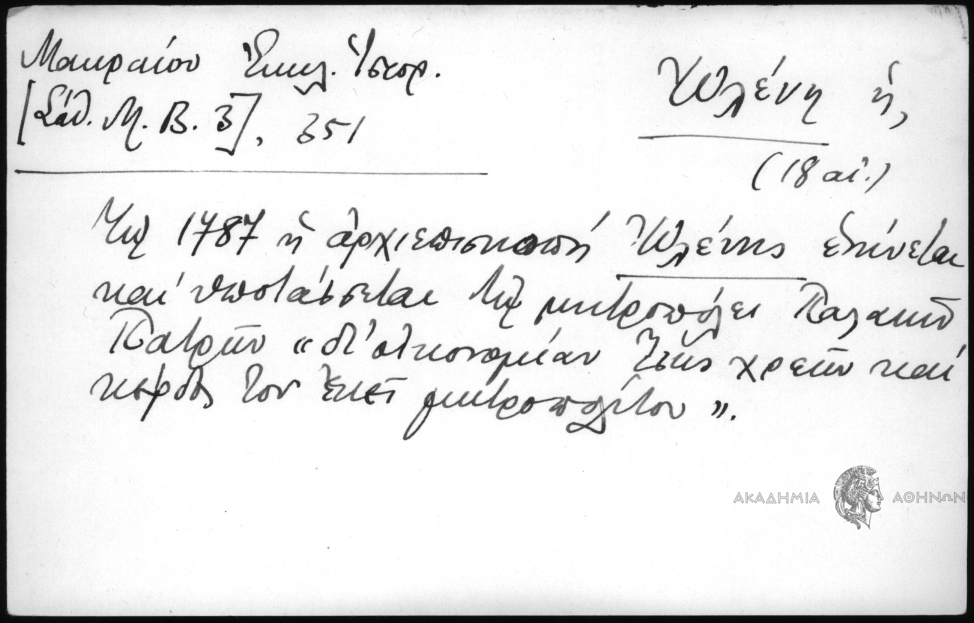 Μακραίου Ἐκκλ. Ἱστορ.
[Σάθ. Μ. Β. 3], 351
Ὠλένη ἡ,
(18 αἰ.)
Τῷ 1787 ἡ ἀρχιεπισκοπή Ὠλένης
καί ὑποτάσσεται τῇ μητροπόλει Παλαιῶν
Πατρῶν « δι' οἰκονομίαν χρεῶν καί
κέρδος τοῦ ἐκεῖ μητροπολίτου ».
ΑΚΑΔΗΜΙΑ ΑΘΗΝΩΝ